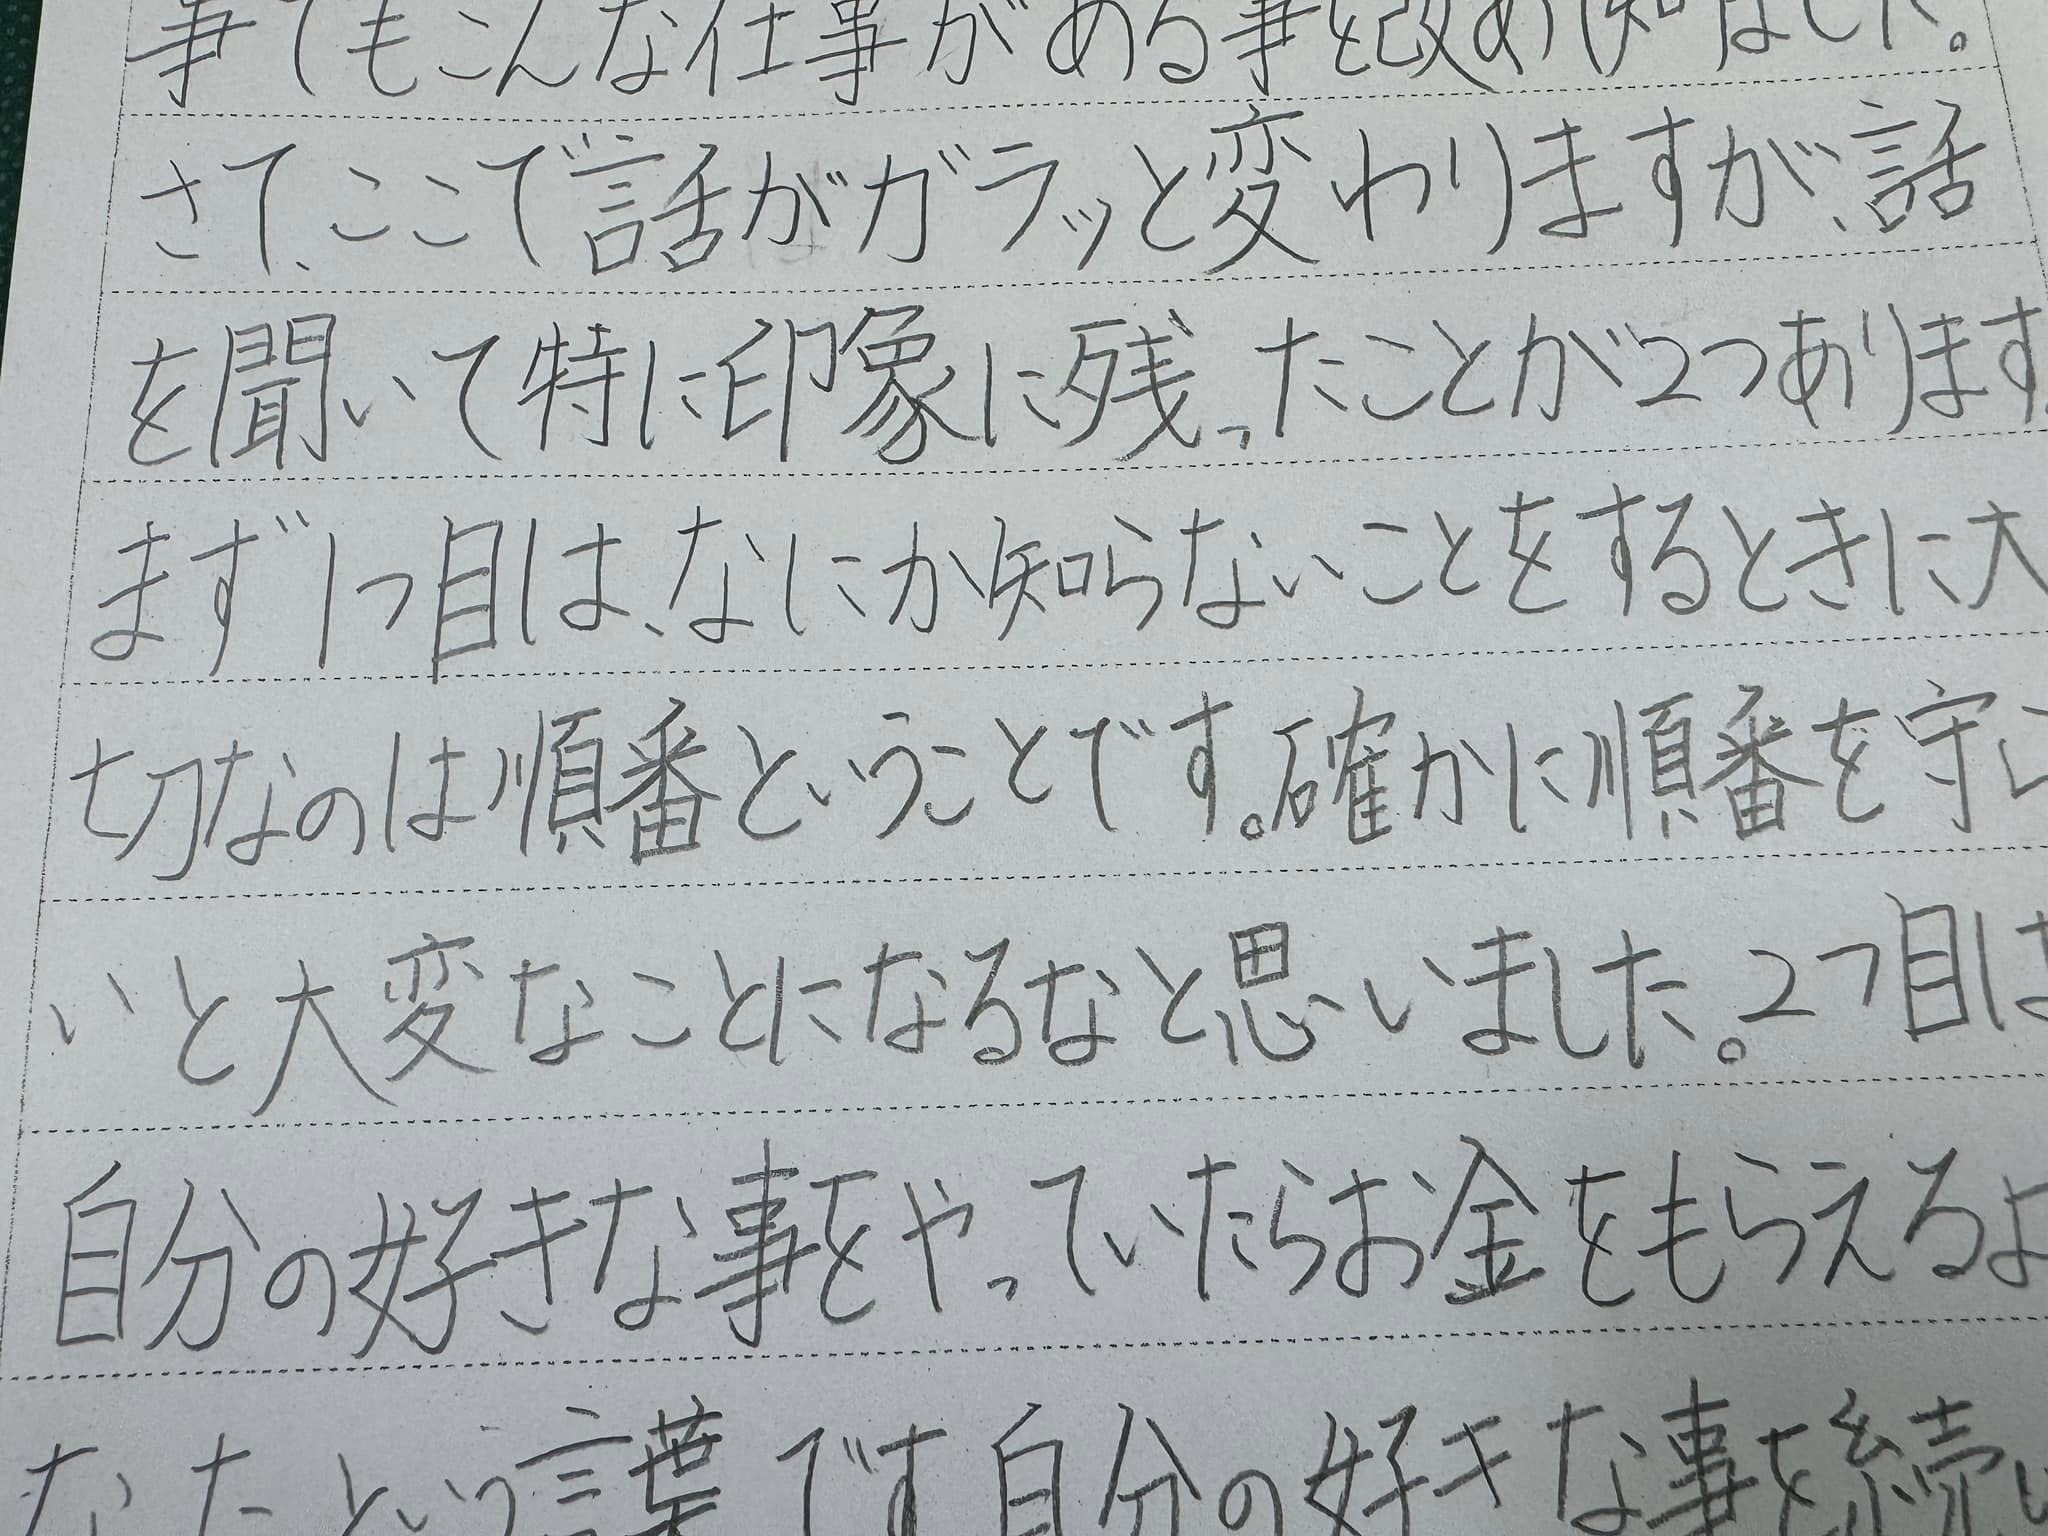 事でもこんな仕事がある事を改め知ました。
さて、ここで話がガラッと変わりますが、話
を聞いて特に印象に残ったことが2つあります
まず1つ目は、なにか知らないことをするときに大
切なのは順番ということです。確かに順番を守ら
いと大変なことになるなと思いました。2つ目は
自分の好きな事をやっていたらお金をもらえるよ
なったという言葉です自分の好きな事を続